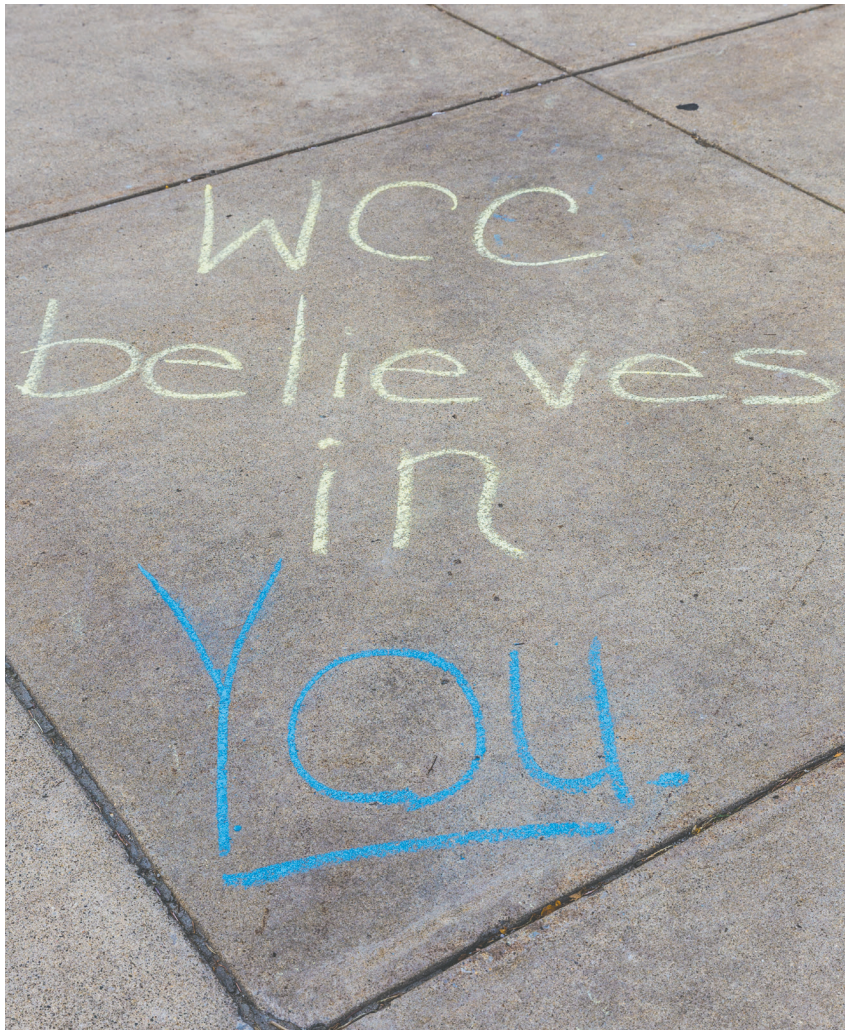 WCC
believes
in
You.